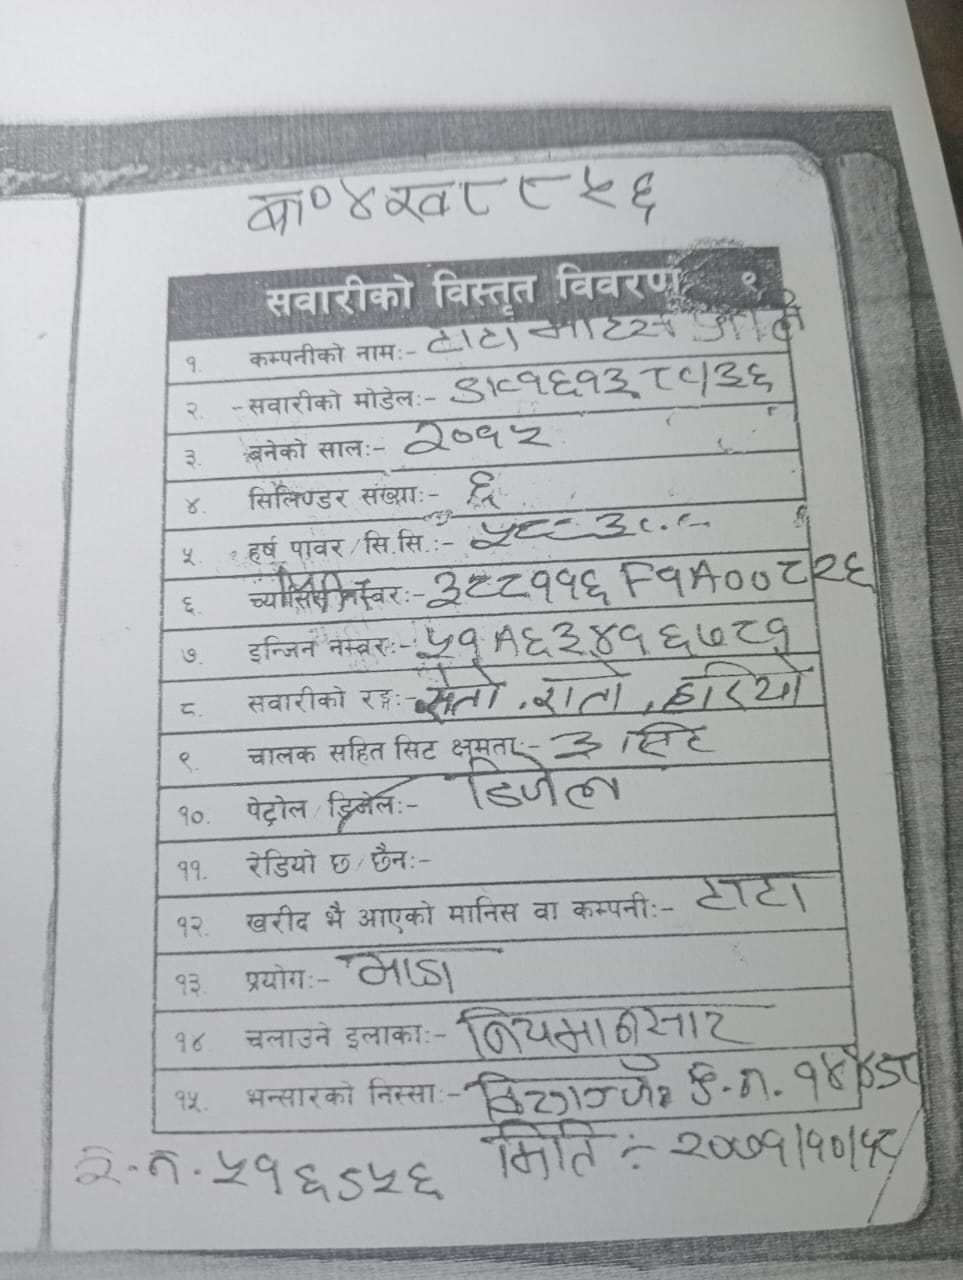 बा० ४ ख ८८५६
सवारीको विस्तृत विवरण १
१ कम्पनीको नामः- टाटा मोटर्स
२. सवारीको मोडेलः-
३. बनेको सालः- २०१५
४. सिलिण्डर संख्याः- ६
५ हर्ष पावर/सि.सि.:-
६ च्यासिस नम्बरः- ३८८११६F१A००८२६
७. इन्जिन नम्बरः- ५१A६३४१६७८१
८. सवारीको रङ्गः- सेतो, रातो, हरियो
९. चालक सहित सिट क्षमताः- ३ सिट
१०. पेट्रोल/डिजेलः- डिजेल
११. रेडियो छ/छैनः-
१२. खरीद भै आएको मानिस वा कम्पनीः- टाटा
१३. प्रयोगः- भाडा
१४ चलाउने इलाकाः- नियमानुसार
१५. भन्सारको निस्साः-
मितिः- २०७१/१०/१८
र.नं. ५१६७५६